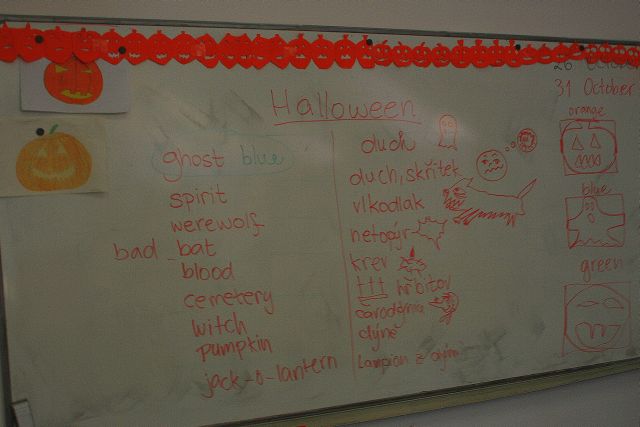 26 October
31 October
Halloween
ghost blue
spirit
werewolf
bad - bat
blood
cemetery
witch
pumpkin
jack-o-lantern
duch
duch, skřítek
vlkodlak
netopýr
krev
hřbitov
čarodějnice
dýně
Lampion z dýně
orange
blue
green